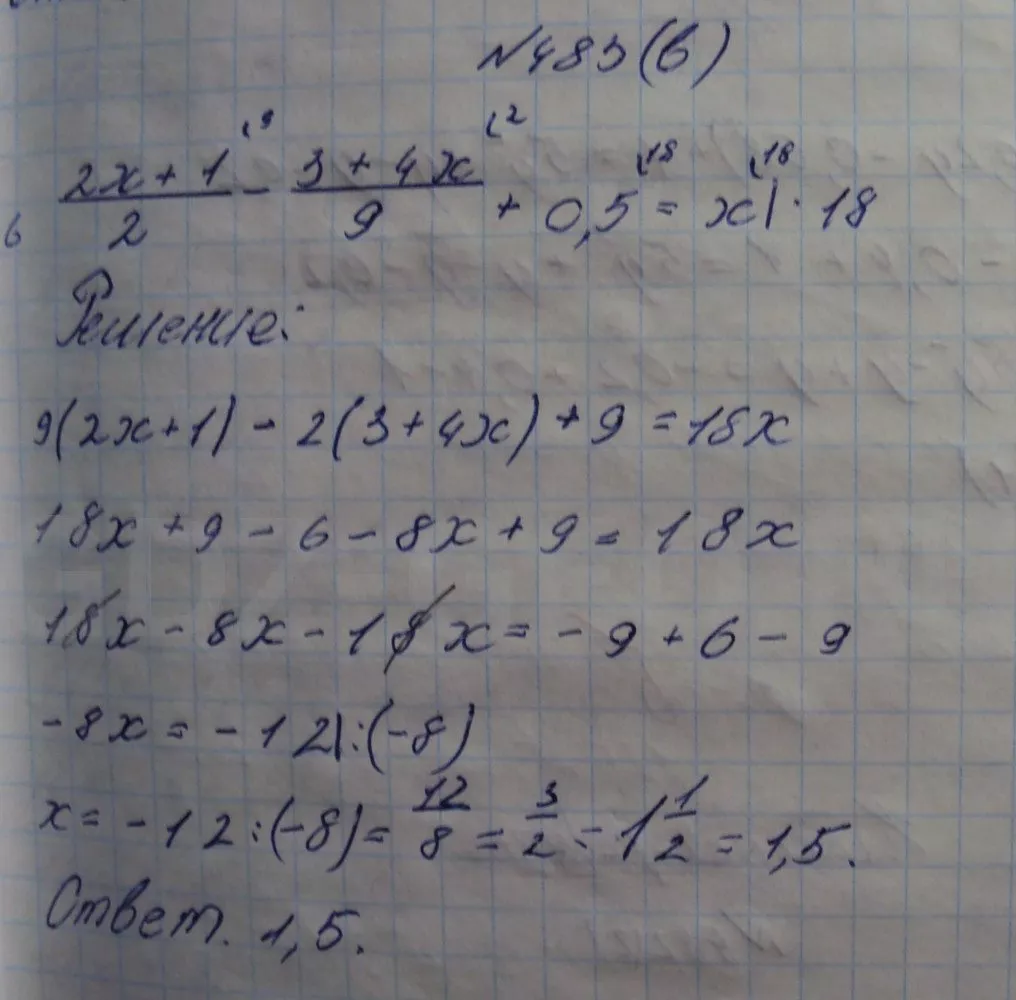 №483(в)
(2x + 1)/2 ⁽⁹ - (3 + 4x)/9 ⁽² + 0,5 ⁽¹⁸ = x ⁽¹⁸ | · 18
б
Решение:
9(2x+1) - 2(3+4x) + 9 = 18x
18x + 9 - 6 - 8x + 9 = 18x
18x - 8x - 18x = - 9 + 6 - 9
-8x = - 12|:(-8)
x = -12:(-8) = 12/8 = 3/2 = 1 1/2 = 1,5.
Ответ. 1,5.